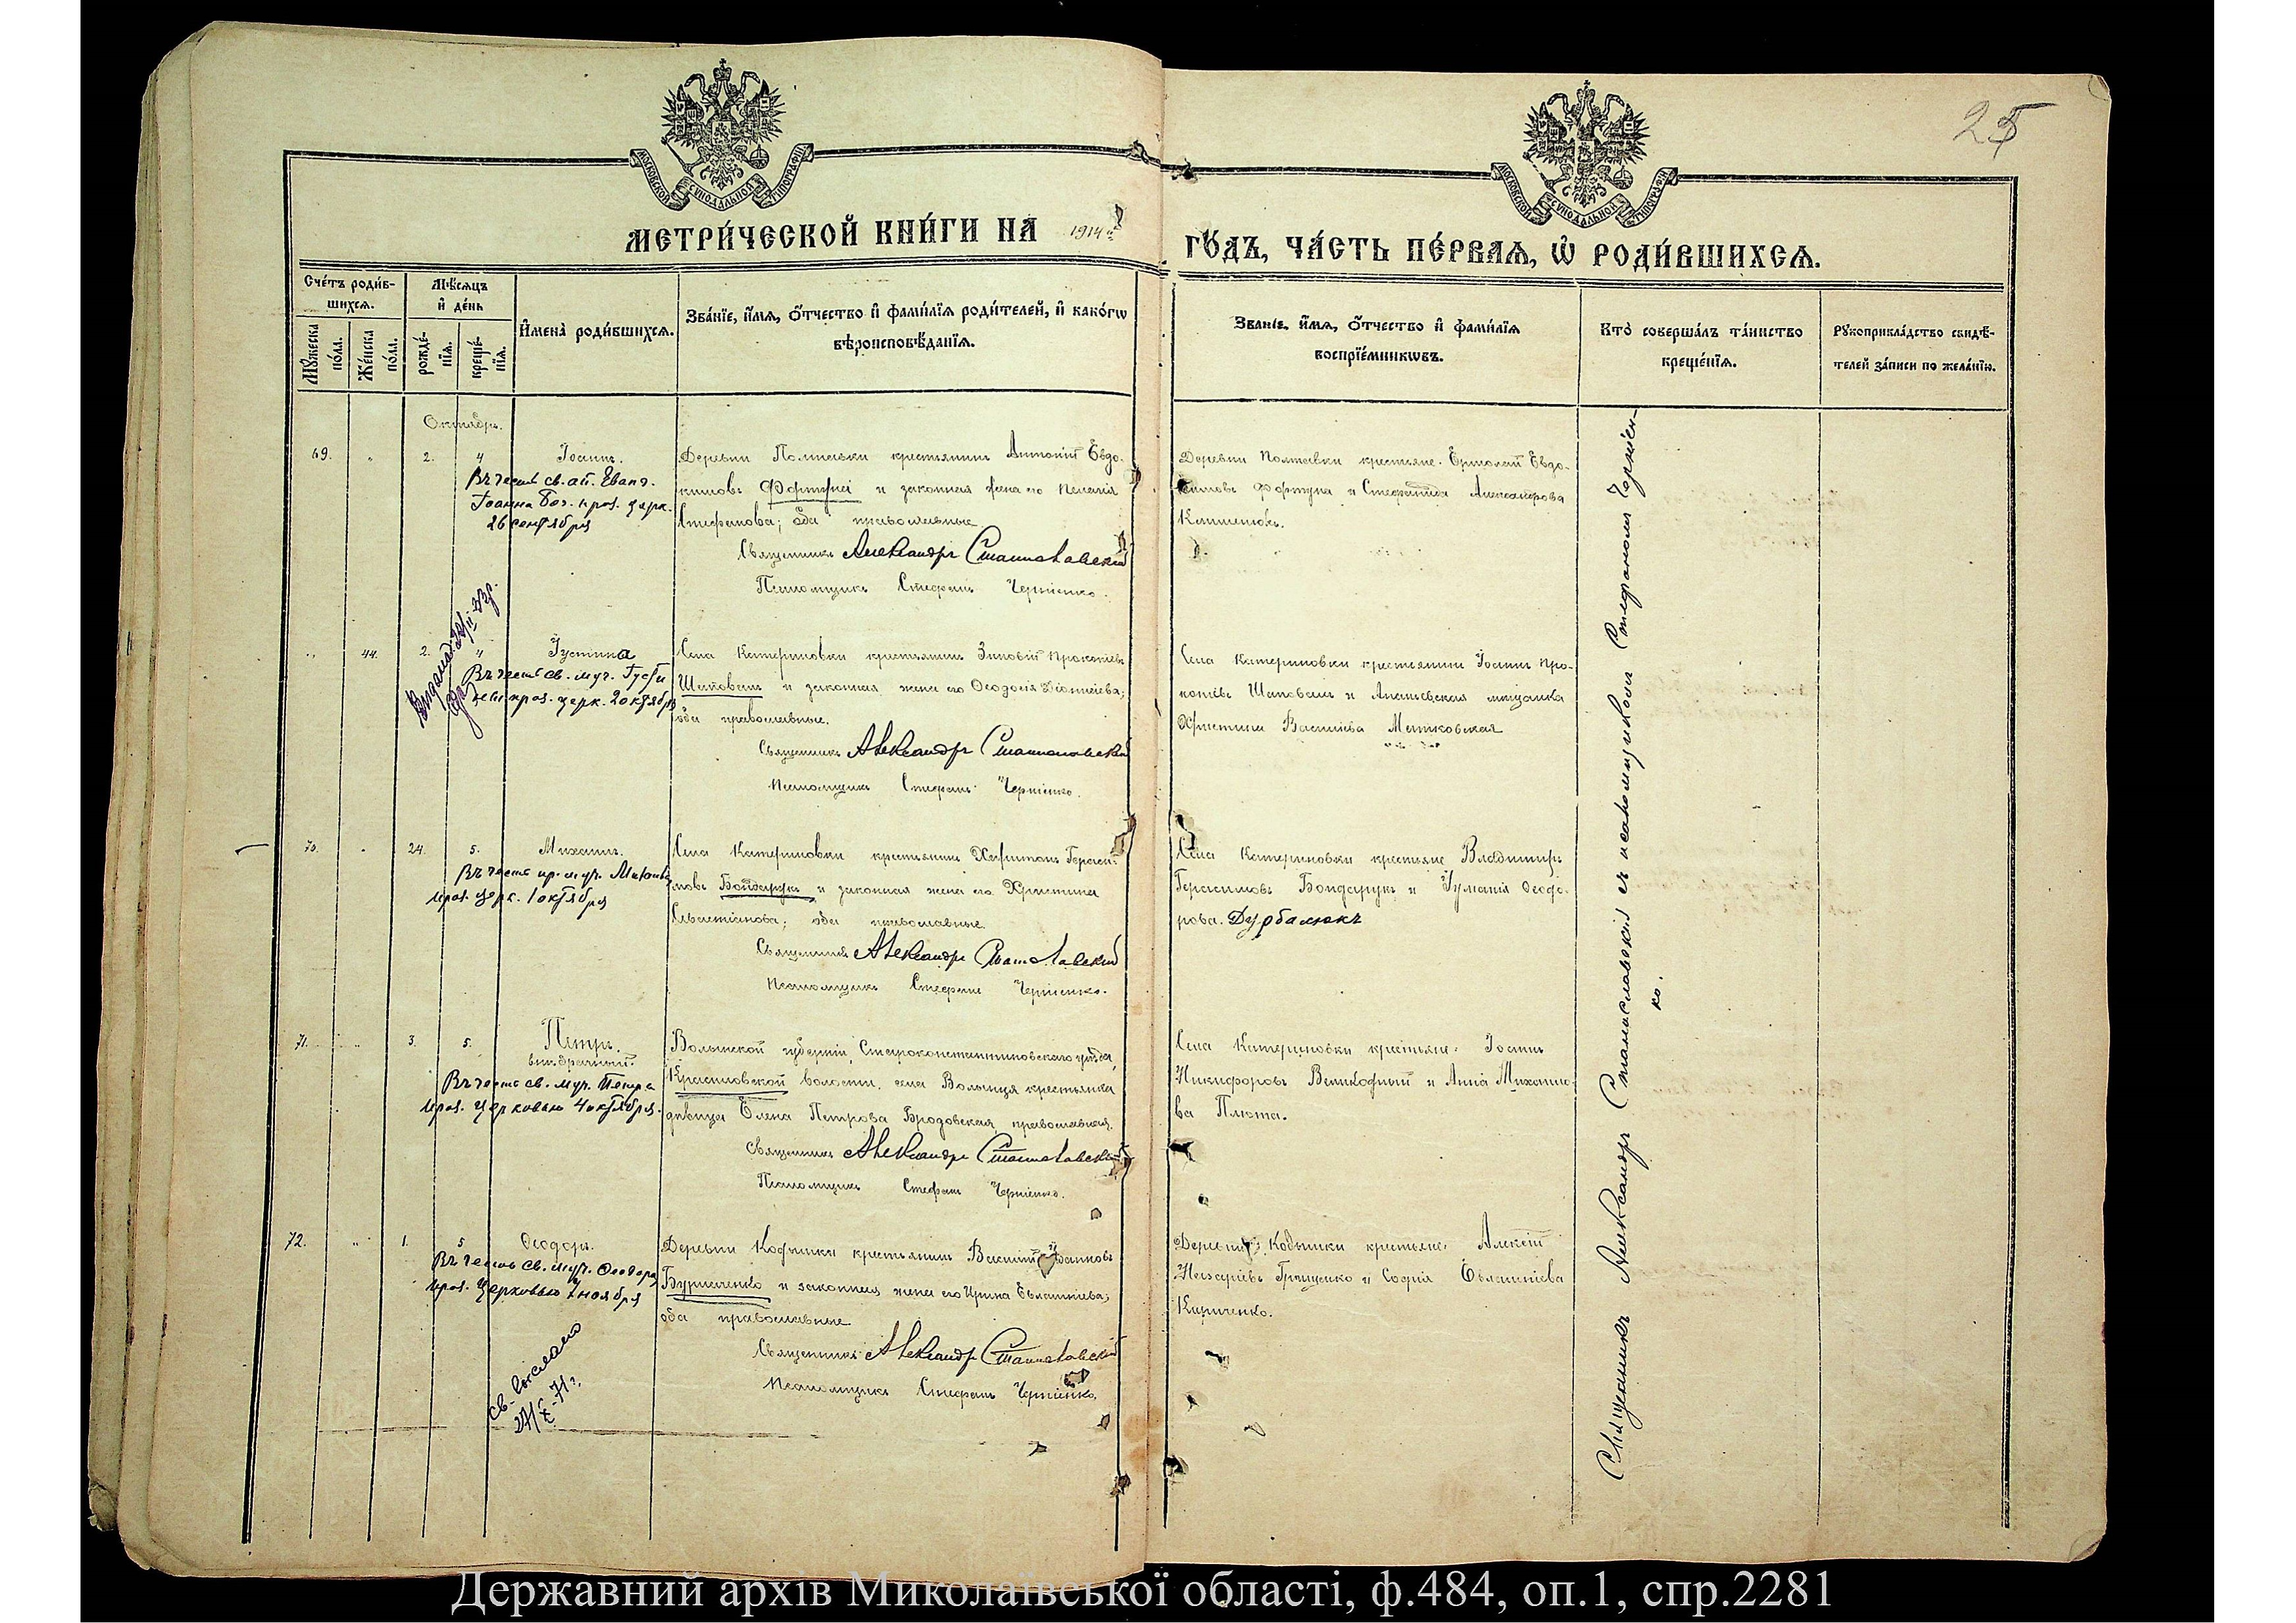 25
МОСКОВСКОЙ СѴНОДАЛЬНОЙ ТИПОГРАФІИ
МОСКОВСКОЙ СѴНОДАЛЬНОЙ ТИПОГРАФІИ
МЕТРИ́ЧЕСКОЙ КНИ́ГИ НА 1914й
ГО́ДЪ, ЧА́СТЬ ПЕ́РВАѦ, Ѡ҆ РОДИ́ВШИХСѦ.
Сче́тъ роди́в-
шихсѧ.
Мꙋ́жеска
по́ла.
Же́нска
по́ла.
Мѣ́сѧцъ
и҆ де́нь
рожде́-
нїѧ.
креще́-
нїѧ.
И҆мена̀ роди́вшихсѧ.
Зва́нїе, и҆́мѧ, ѻ҆́тчество и҆ фами́лїѧ роди́телей, и҆ како́гѡ
вѣроисповѣ́данїѧ.
Зва́нїе, и҆́мѧ, ѻ҆́тчество и҆ фами́лїѧ
воспрїе́мникѡвъ.
Кто̀ соверша́лъ та́инство
креще́нїѧ.
Рꙋкоприкла́дство свидѣ́-
телей за́писи по жела́нїю.
Октябрь.
69. " 2. 4 Іоаннъ.
Въ честь св. ап. Еванг.
Іоанна Бог. праз. церк.
26 сентября
Деревни Полтавки крестьянинъ Антоній Евдо-
кимовъ Фортуна и законная жена его Пелагія
Стефанова; оба православные
Священникъ Александръ Станиславскій
Псаломщикъ Стефанъ Черніенко.
Деревни Полтавки крестьяне: Ермолай Евдо-
кимовъ Фортуна и Стефанида Александрова
" 44. 2. " Іустина
Въ честь св. муч. Густи
праз. церк. 2 октября
Села Катериновки крестьянинъ Зиновій Прокопіевъ
Шаповалъ и законная жена его Ѳеодосія Діонисіева;
оба православные.
Священникъ Александръ Станиславскій
Псаломщикъ Стефанъ Черніенко.
Села Катериновки крестьянинъ Іоаннъ Про-
копіевъ Шаповалъ и Ананьевская мѣщанка
Христина Васильева
70. " 24. 5. Михаилъ.
Въ честь пр. муч. Михаила
праз. церк. 1 октября
Села Катериновки крестьянинъ Харитонъ Гераси-
мовъ Бондарукъ и законная жена его Христина
Севастіанова; оба православные.
Священникъ Александръ Станиславскій
Псаломщикъ Стефанъ Черніенко.
Села Катериновки крестьяне Владимиръ
Герасимовъ Бондарукъ и Іуліанія Ѳеодо-
рова. Дурбалюкъ
71. " 3. 5. Петръ.
внѣбрачный.
Въ честь св. муч. Петра
праз. церковью 4 октября.
Волынской губерніи, Староконстантиновскаго уѣзда,
Красиловской волости, села Волица крестьянка
дѣвица Елена Петрова Бродовская, православная.
Священникъ Александръ Станиславскій
Псаломщикъ Стефанъ Черніенко.
Села Катериновки крестьяне: Іоаннъ
Никифоровъ Великодный и Анна Михаило-
ва Плюта.
72. " 1. 5 Ѳеодоръ.
Въ честь св. муч. Ѳеодора
праз. церковью ноября
Деревни Кодымки крестьянинъ Василій
Бурлаченко и законная жена его Ирина Евлампіева;
оба православные
Священникъ Александръ Станиславскій
Псаломщикъ Стефанъ Черніенко.
Деревни Кодымки крестьяне: Алексій
Назаріевъ Грищенко и Софія Евлампіева
Кириченко.
св. выслано
27/X-71 г.
Священникъ Александръ Станиславскій съ псаломщикомъ Стефаномъ Черніен-
ко.
Державний архів Миколаївської області, ф.484, оп.1, спр.2281